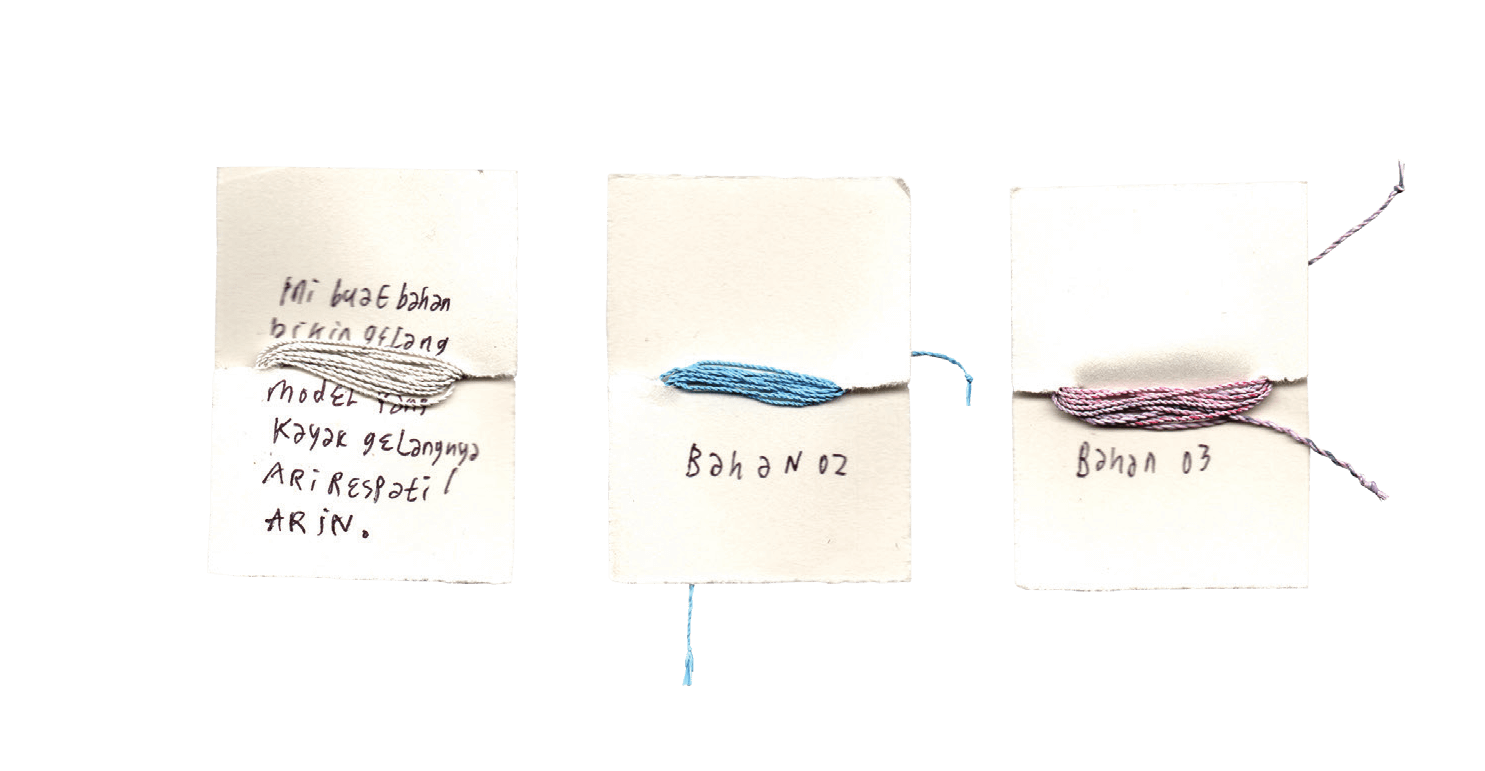 Ini buat bahan
bikin gELang
modEL yang
Kayak gELangnya
ARi REspati /
ARiN.
BahaN 02
Bahan 03